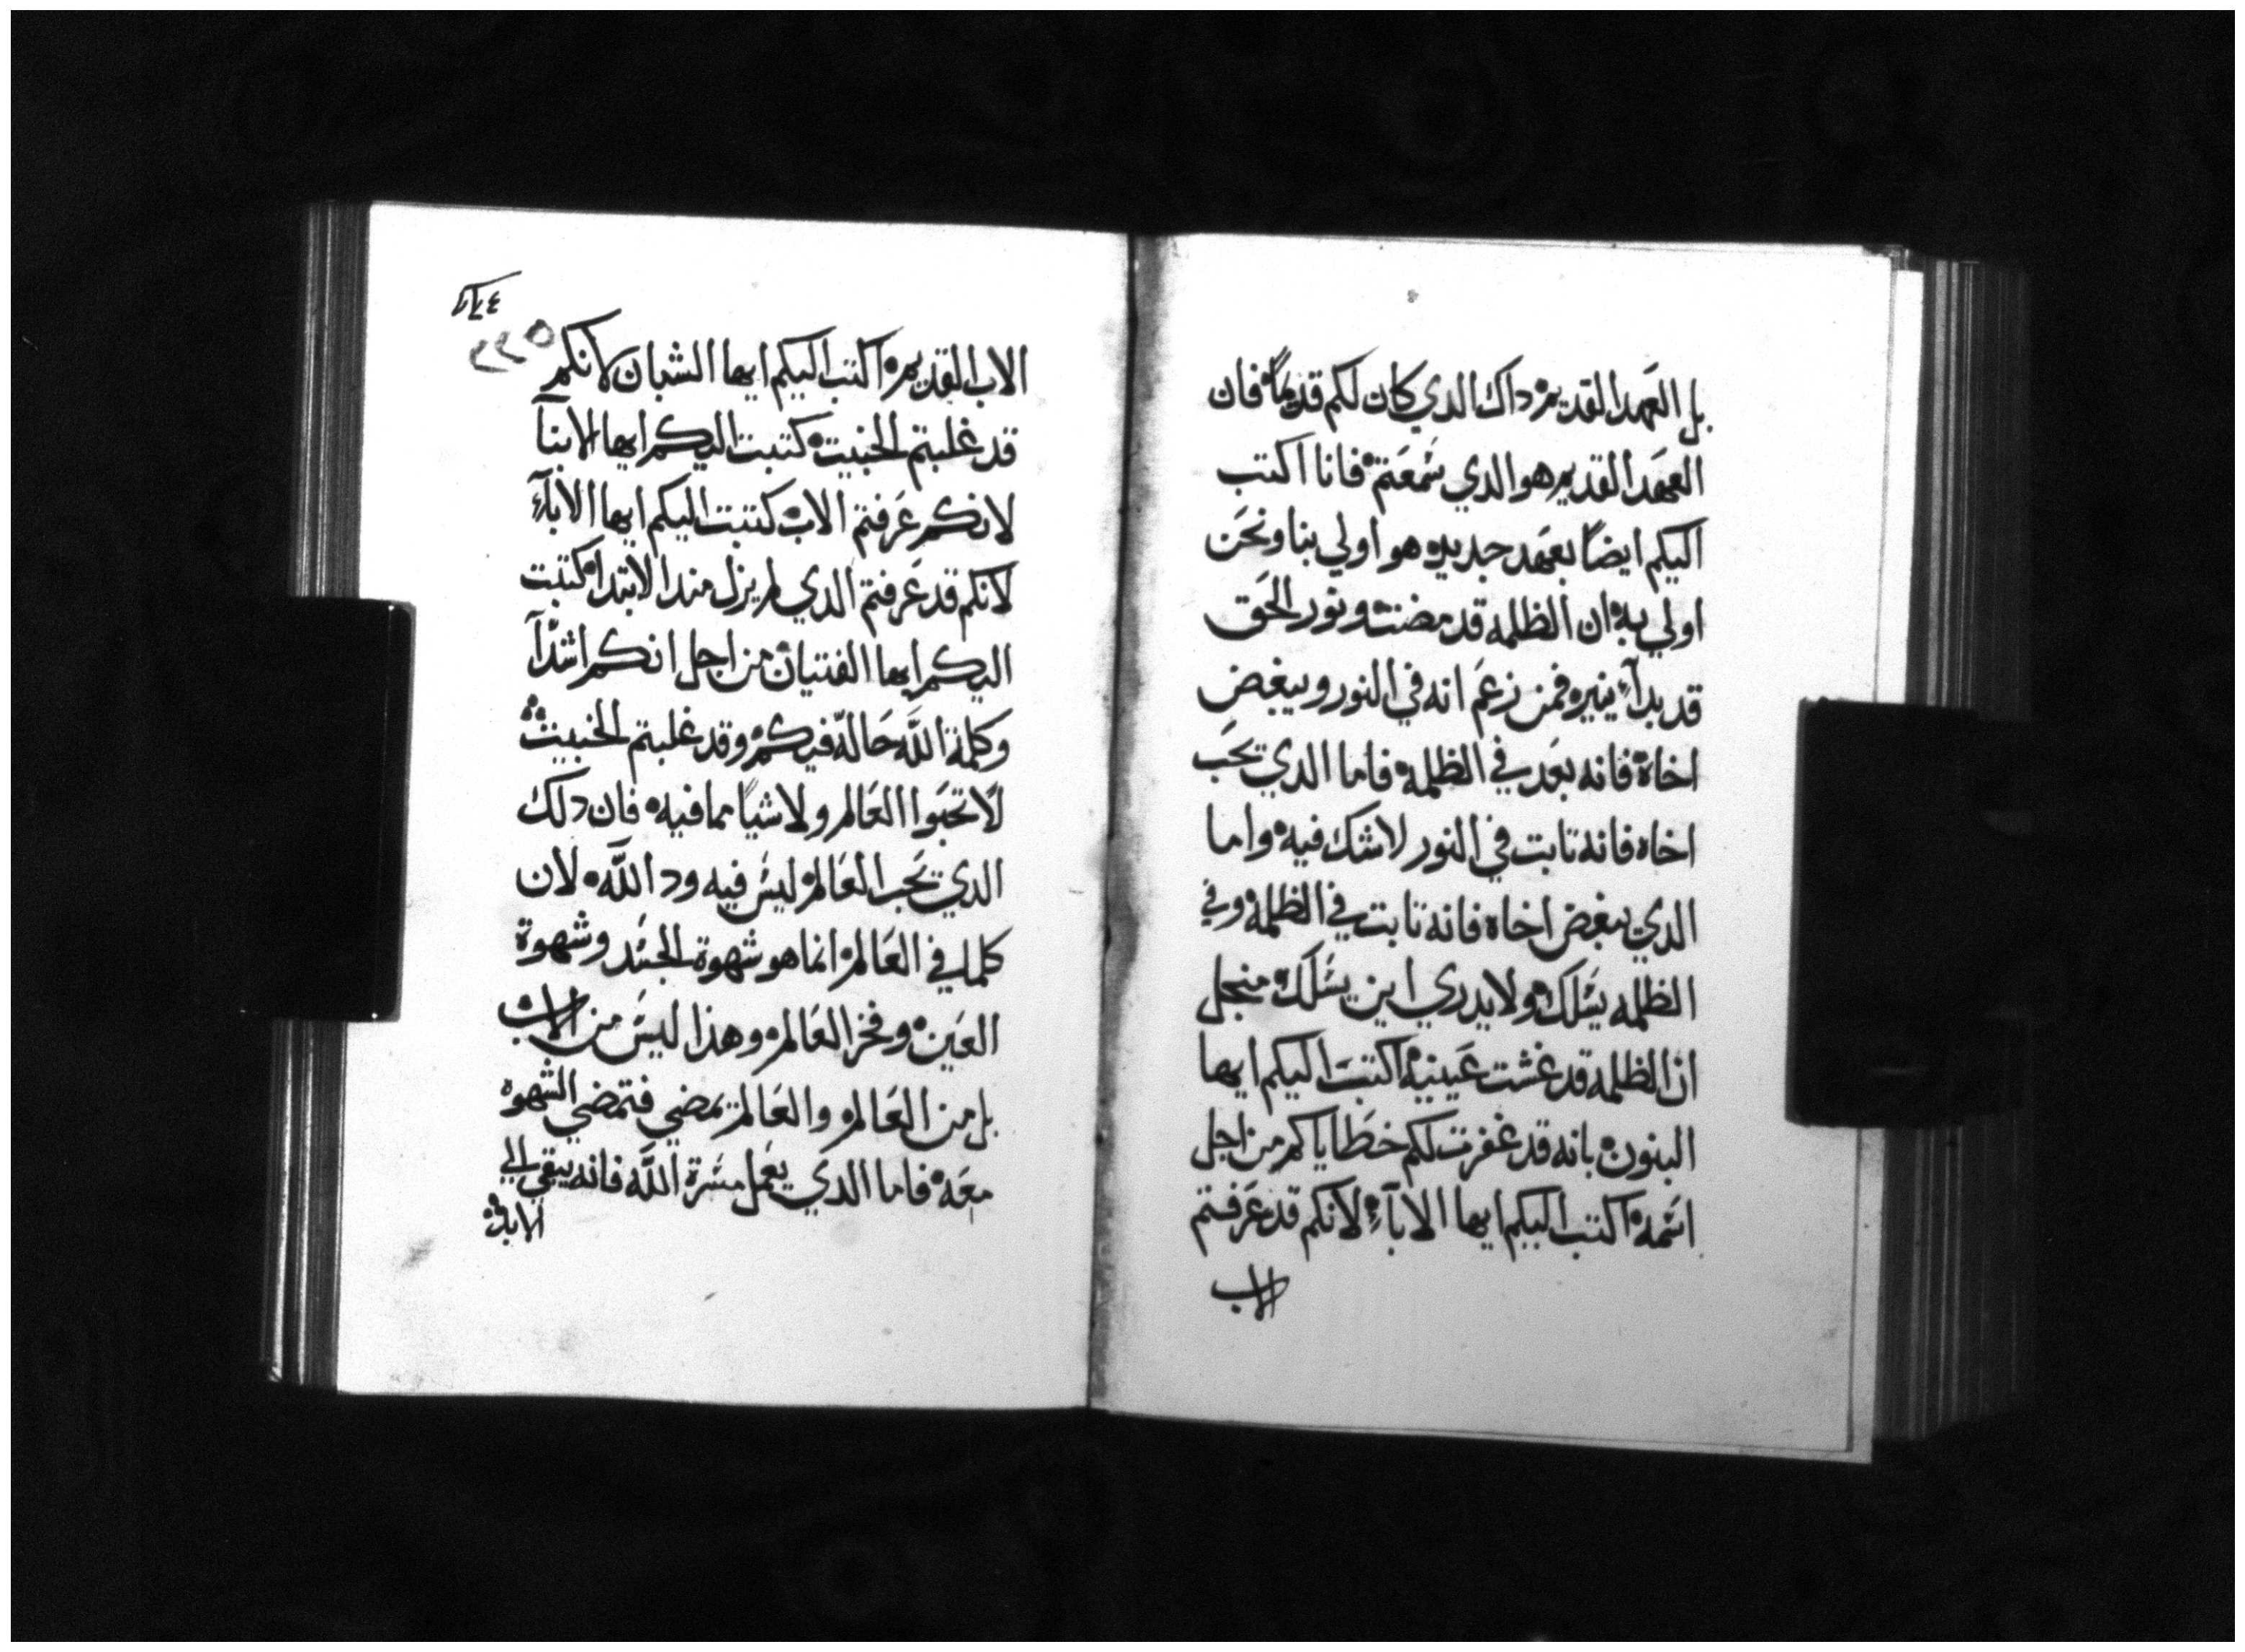 بل العَهد القديم ه داك الدي كان لكم قديمًا ه فان
العهَد القديم هو الدي سَمعَتم ه فانا اكتب
اليكم ايضًا بعهَد جديد ه هو اولي بنا ونحَن
اولي به ه ان الظلمه قد مضت ه ونور الحَق
قد بدآء ينير ه فمن زعَم انه في النور ويبغض
اخاه ه فانه بعَد في الظلمه ه فاما الدي يحَب
اخاه فانه تابت في النور لا شك فيه ه واما
الدي يبغض اخاه فانه تابت في الظلمه وفي
الظلمه يسَلك ه ولا يدري اين يسَلك ه منجل
ان الظلمه قد غشت عَينيه ه اكتبَ اليكم ايها
البنون ه بانه قد غفرت لكم خطاياكم من اجل
اسَمه ه اكتب اليكم ايها الابآء ه لانكم قد عَرفتم
الاب
٢٢٤
٢٢٥
الاب القديم ه اكتب اليكم ايها الشبان لانكم
قد غلبتم الخبيت ه كتبت اليكم ايها الابنآ
لانكم عَرفتم الاب ه كتبت اليكم ايها الابآء
لانكم قد عَرفتم الدي لم يزل مند الابتدا ه كتبت
اليكم ايها الفتيان ه من اجل انكم اشدآ
وكلمة اللَّه حَالّه فيكم ه وقد غلبتم الخبيث ه
لا تحَبوا العَالم ولا شيًا مما فيه ه فان دلك
الدي يحَب العَالم ه ليسَ فيه ود اللَّه ه لان
كلما في العَالم ه انما هو شهوة الجسَد وشهوة
العَين ه وفخر العَالم ه وهذا ليسَ من الاب
بل من العَالم ه والعَالم يمضي فتمضي الشهوه
معَه ه فاما الدي يعَمل مسَرة اللَّه فانه يبقي الي
الابد ه